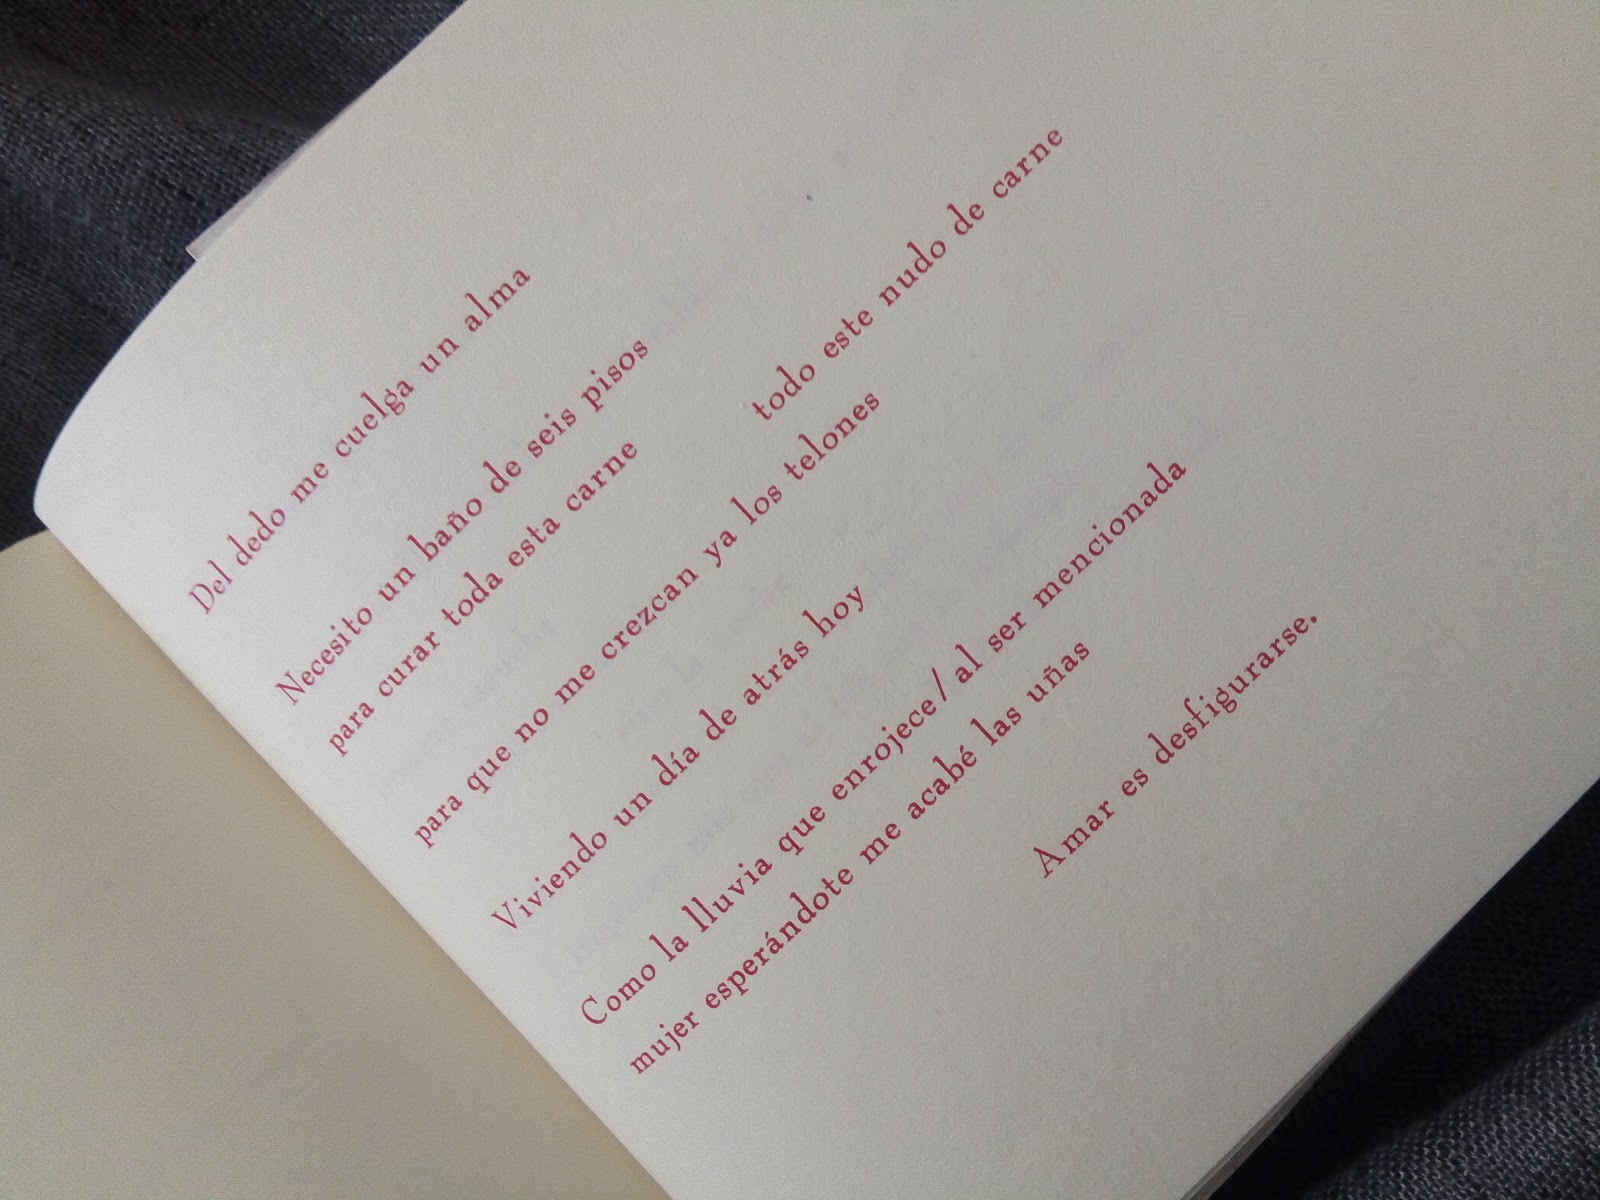 Del dedo me cuelga un alma
Necesito un baño de seis pisos
para curar toda esta carne todo este nudo de carne
para que no me crezcan ya los telones
Viviendo un día de atrás hoy
Como la lluvia que enrojece / al ser mencionada
mujer esperándote me acabé las uñas
Amar es desfigurarse.